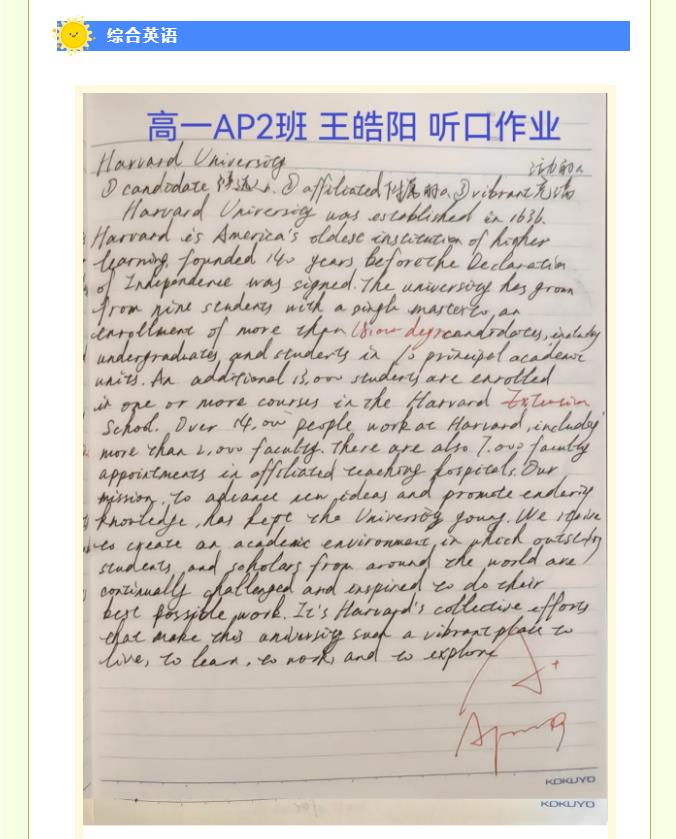 综合英语
高一AP2班 王皓阳 听口作业
Harvard University
① candidate 候选人 n. ② affiliated 附属的 a. ③ vibrant 充满
活力的 a.
Harvard University was established in 1636.
Harvard is America's oldest institution of higher
learning, founded 140 years before the Declaration
of Independence was signed. The university has grown
from nine students with a single master to an
enrollment of more than 18,000 degree candidates, including
undergraduates, and students in 10 principal academic
units. An additional 13,000 students are enrolled
in one or more courses in the Harvard Extension
School. Over 14,000 people work at Harvard, including
more than 2,000 faculty. There are also 7,000 faculty
appointments in affiliated teaching hospitals. Our
mission, to advance new ideas and promote enduring
knowledge, has kept the University young. We strive
to create an academic environment in which outstanding
students and scholars from around the world are
continually challenged and inspired to do their
best possible work. It's Harvard's collective efforts
that make this university such a vibrant place to
live, to learn, to work, and to explore
A+
KOKUYO
KOKUYO